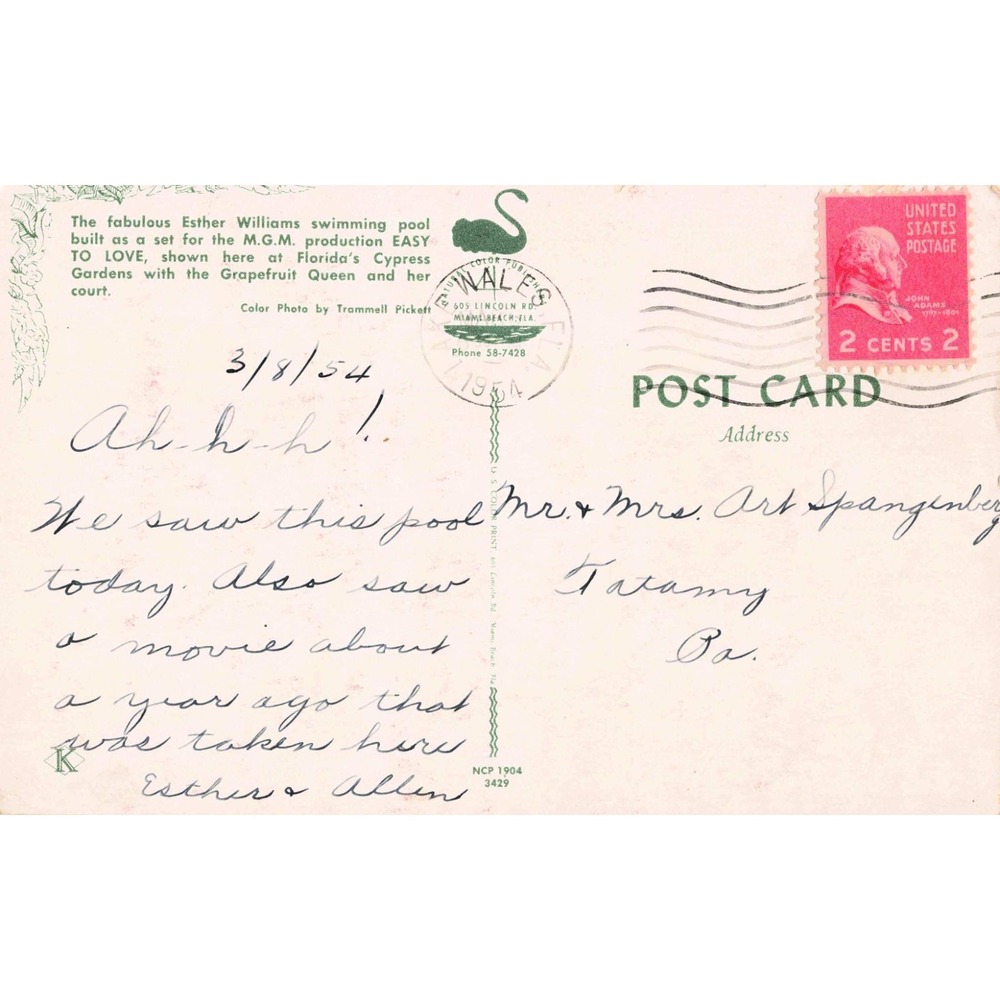 The fabulous Esther Williams swimming pool
built as a set for the M.G.M. production EASY
TO LOVE, shown here at Florida's Cypress
Gardens with the Grapefruit Queen and her
court.
Color Photo by Trammell Pickett
NATURAL COLOR PUBLISHERS
605 LINCOLN RD.
MIAMI BEACH, FLA.
Phone 58-7428
WALES
FLA.
1954
UNITED
STATES
POSTAGE
JOHN
ADAMS
1797-1801
2 CENTS 2
POST CARD
Address
3/8/54
Ah-h-h!
We saw this pool
today. Also saw
a movie about
a year ago that
was taken here
Esther & Allen
Mr. & Mrs. Art Spangenberg
Tatamy
Pa.
U.S. COLOR PRINT. 605 Lincoln Rd. Miami Beach, Fla.
K
NCP 1904
3429